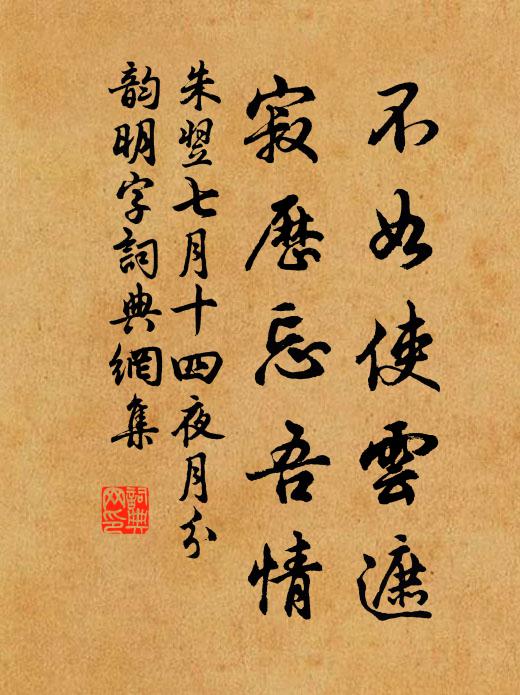 不如使雲遮
寂歷忘吾情
朱翌七月十四夜月分
韵明字詞典網集
詞典
网印